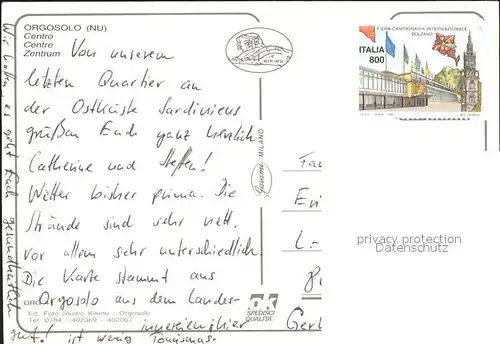 ORGOSOLO (NU)
Centro
Centre
Zentrum
Von unserem
letzten Quartier an
der Ostküste Sardiniens
grüßen Euch ganz herzlich
Catherine und Steffen!
Wetter bisher prima. Die
Strände sind sehr nett,
vor allem sehr unterschiedlich.
Die Karte stammt aus
Orgosolo aus dem Landes-
inneren, hier
ist wenig Tourismus.
Wir hoffen es geht Euch gesundheitlich
gut!
ORG
Ed. Foto Studio Kikuru - Orgosolo
Tel. 0784 - 402369 - 402067
MILANO
ok
SPEDISCI
QUALITÀ
FIERA CAMPIONARIA INTERNAZIONALE
BOLZANO
ITALIA
800
Fa
Eri
L.-
Gerl
privacy protection
Datenschutz